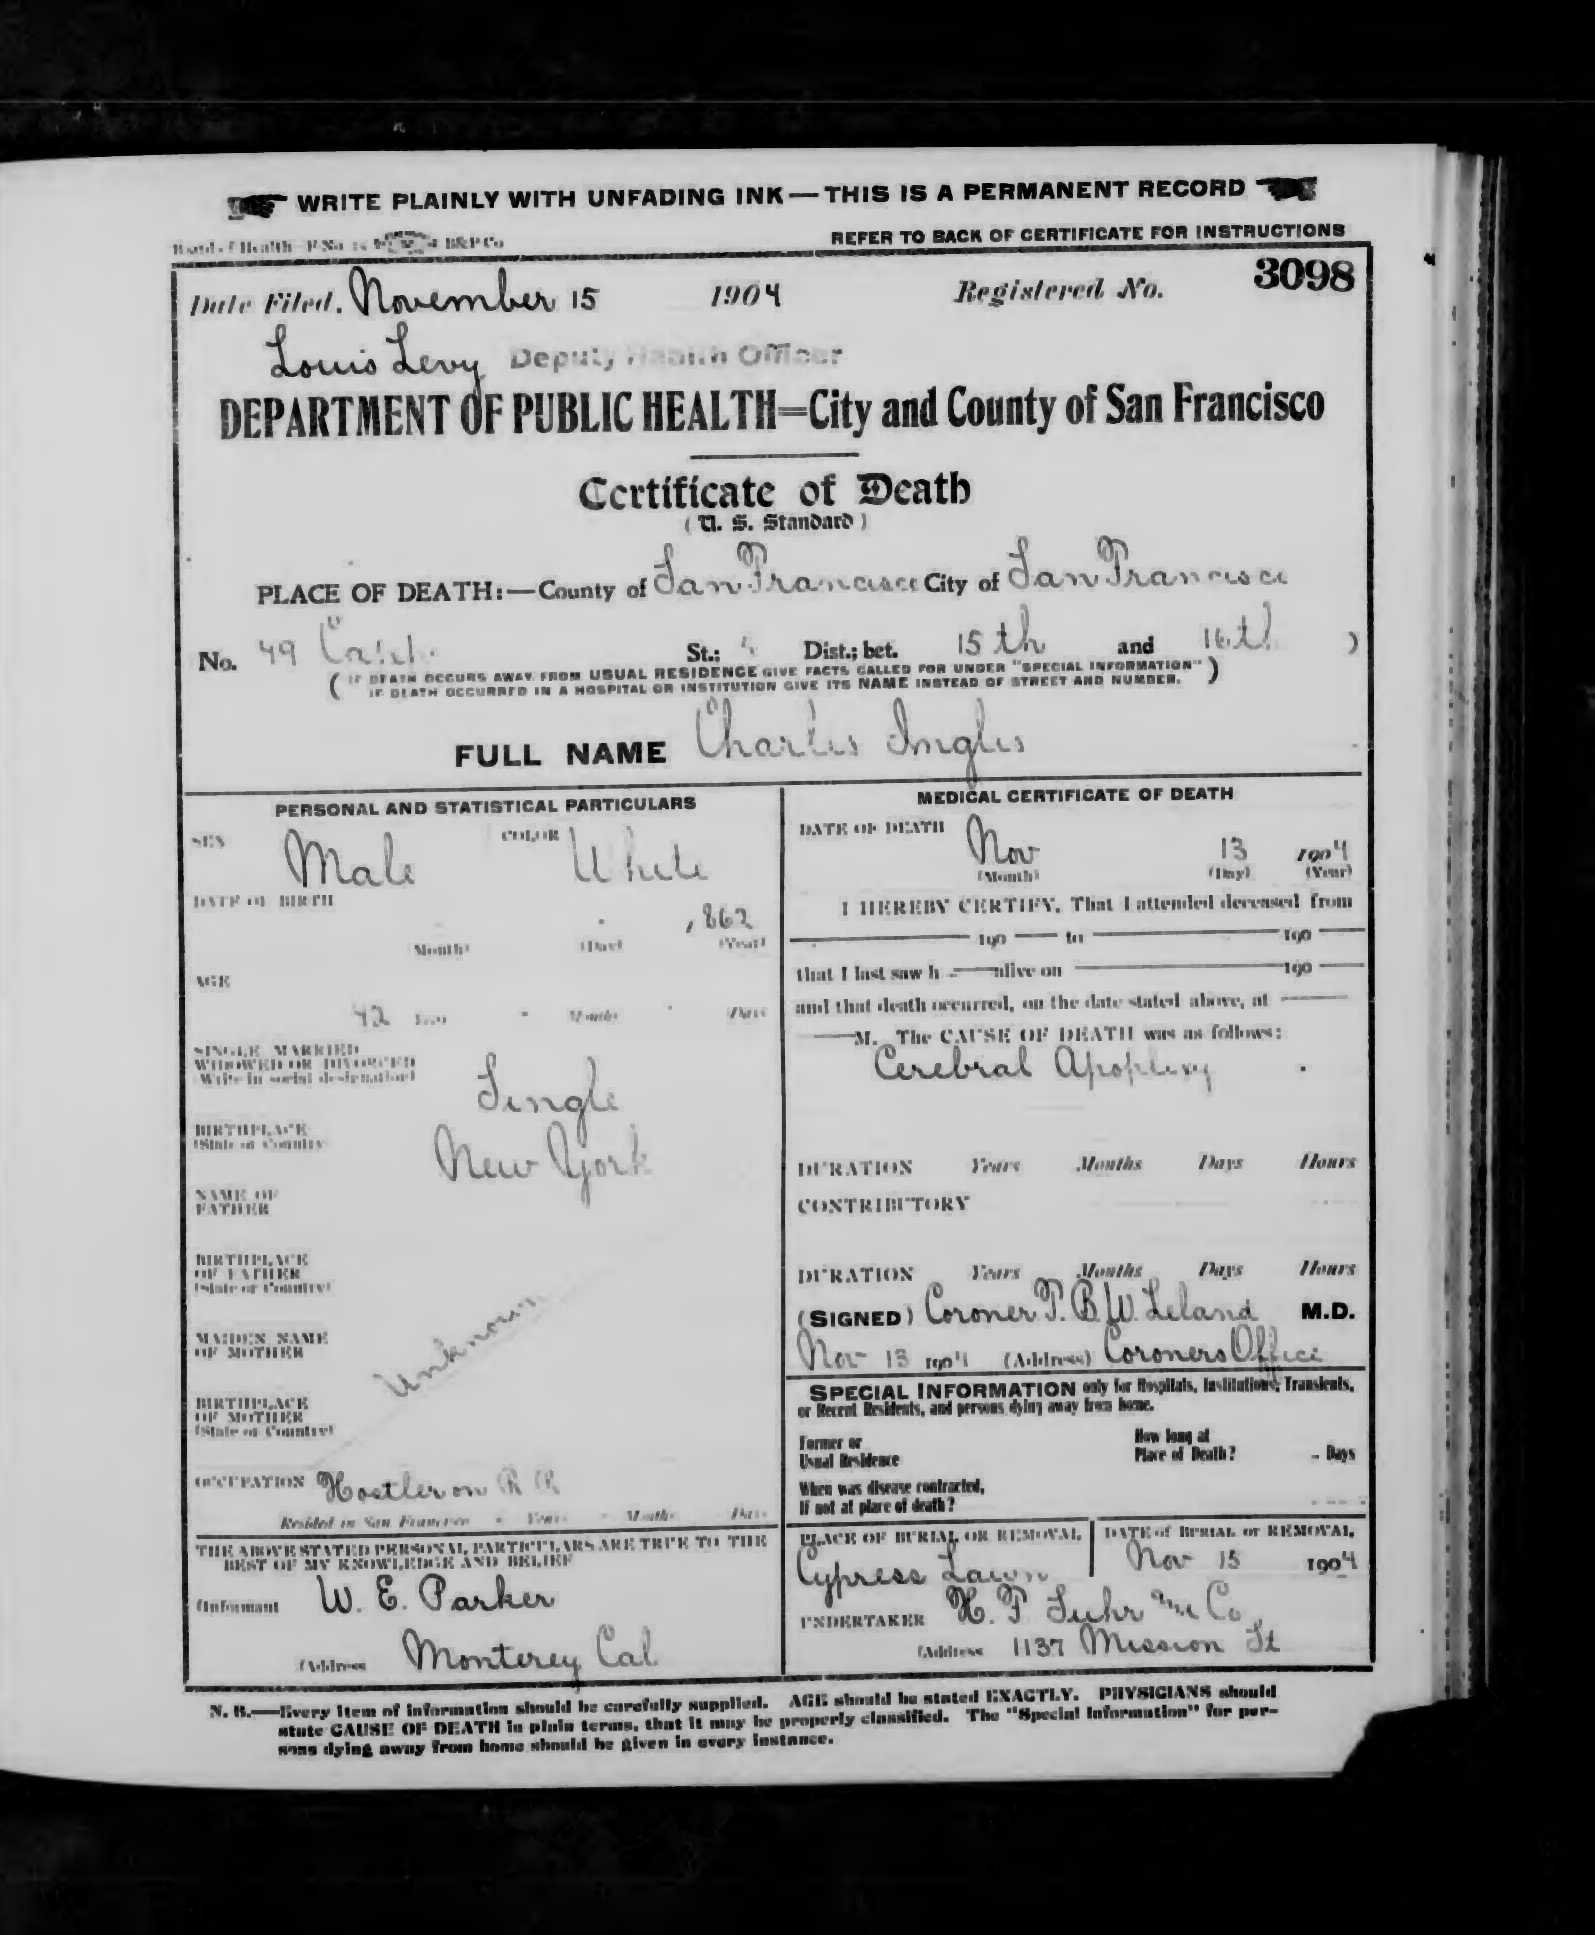 WRITE PLAINLY WITH UNFADING INK — THIS IS A PERMANENT RECORD
Board of Health—F. No. B&P Co
REFER TO BACK OF CERTIFICATE FOR INSTRUCTIONS
Date Filed, November 15 1904 Registered No. 3098
Louis Levy Deputy Health Officer
DEPARTMENT OF PUBLIC HEALTH=City and County of San Francisco
Certificate of Death
( U. S. Standard )
PLACE OF DEATH:—County of San Francisco City of San Francisco
No. 49 St.; Dist.; bet. 15th and 16th )
( IF DEATH OCCURS AWAY FROM USUAL RESIDENCE GIVE FACTS CALLED FOR UNDER "SPECIAL INFORMATION" )
IF DEATH OCCURRED IN A HOSPITAL OR INSTITUTION GIVE ITS NAME INSTEAD OF STREET AND NUMBER.
FULL NAME Charles Inglis
PERSONAL AND STATISTICAL PARTICULARS
SEX Male COLOR White
DATE OF BIRTH
1862
(Month) (Day) (Year)
AGE
42 Years Months Days
SINGLE MARRIED
WIDOWED OR DIVORCED
(Write in social designation)
Single
BIRTHPLACE
(State or Country)
New York
NAME OF
FATHER
BIRTHPLACE
OF FATHER
(State or Country)
Unknown
MAIDEN NAME
OF MOTHER
BIRTHPLACE
OF MOTHER
(State or Country)
OCCUPATION Hostler on R R
Resided in San Francisco Years Months Days
THE ABOVE STATED PERSONAL PARTICULARS ARE TRUE TO THE
BEST OF MY KNOWLEDGE AND BELIEF
(Informant W. E. Parker
(Address Monterey Cal
MEDICAL CERTIFICATE OF DEATH
DATE OF DEATH
Nov 13 1904
(Month) (Day) (Year)
I HEREBY CERTIFY, That I attended deceased from
190 to 190
that I last saw h alive on 190
and that death occurred, on the date stated above, at
M. The CAUSE OF DEATH was as follows:
Cerebral Apoplexy
DURATION Years Months Days Hours
CONTRIBUTORY
DURATION Years Months Days Hours
(SIGNED) Coroner T. B. W. Leland M.D.
Nov 13 1904 (Address) Coroners Office
SPECIAL INFORMATION only for Hospitals, Institutions, Transients,
or Recent Residents, and persons dying away from home.
Former or
Usual Residence
How long at
Place of Death? Days
When was disease contracted,
If not at place of death?
PLACE OF BURIAL OR REMOVAL
Cypress Lawn
DATE of BURIAL or REMOVAL
Nov 15 1904
UNDERTAKER H. F. Suhr Co
(Address 1137 Mission St
N. B.—Every item of information should be carefully supplied. AGE should be stated EXACTLY. PHYSICIANS should
state CAUSE OF DEATH in plain terms, that it may be properly classified. The "Special Information" for per-
sons dying away from home should be given in every instance.